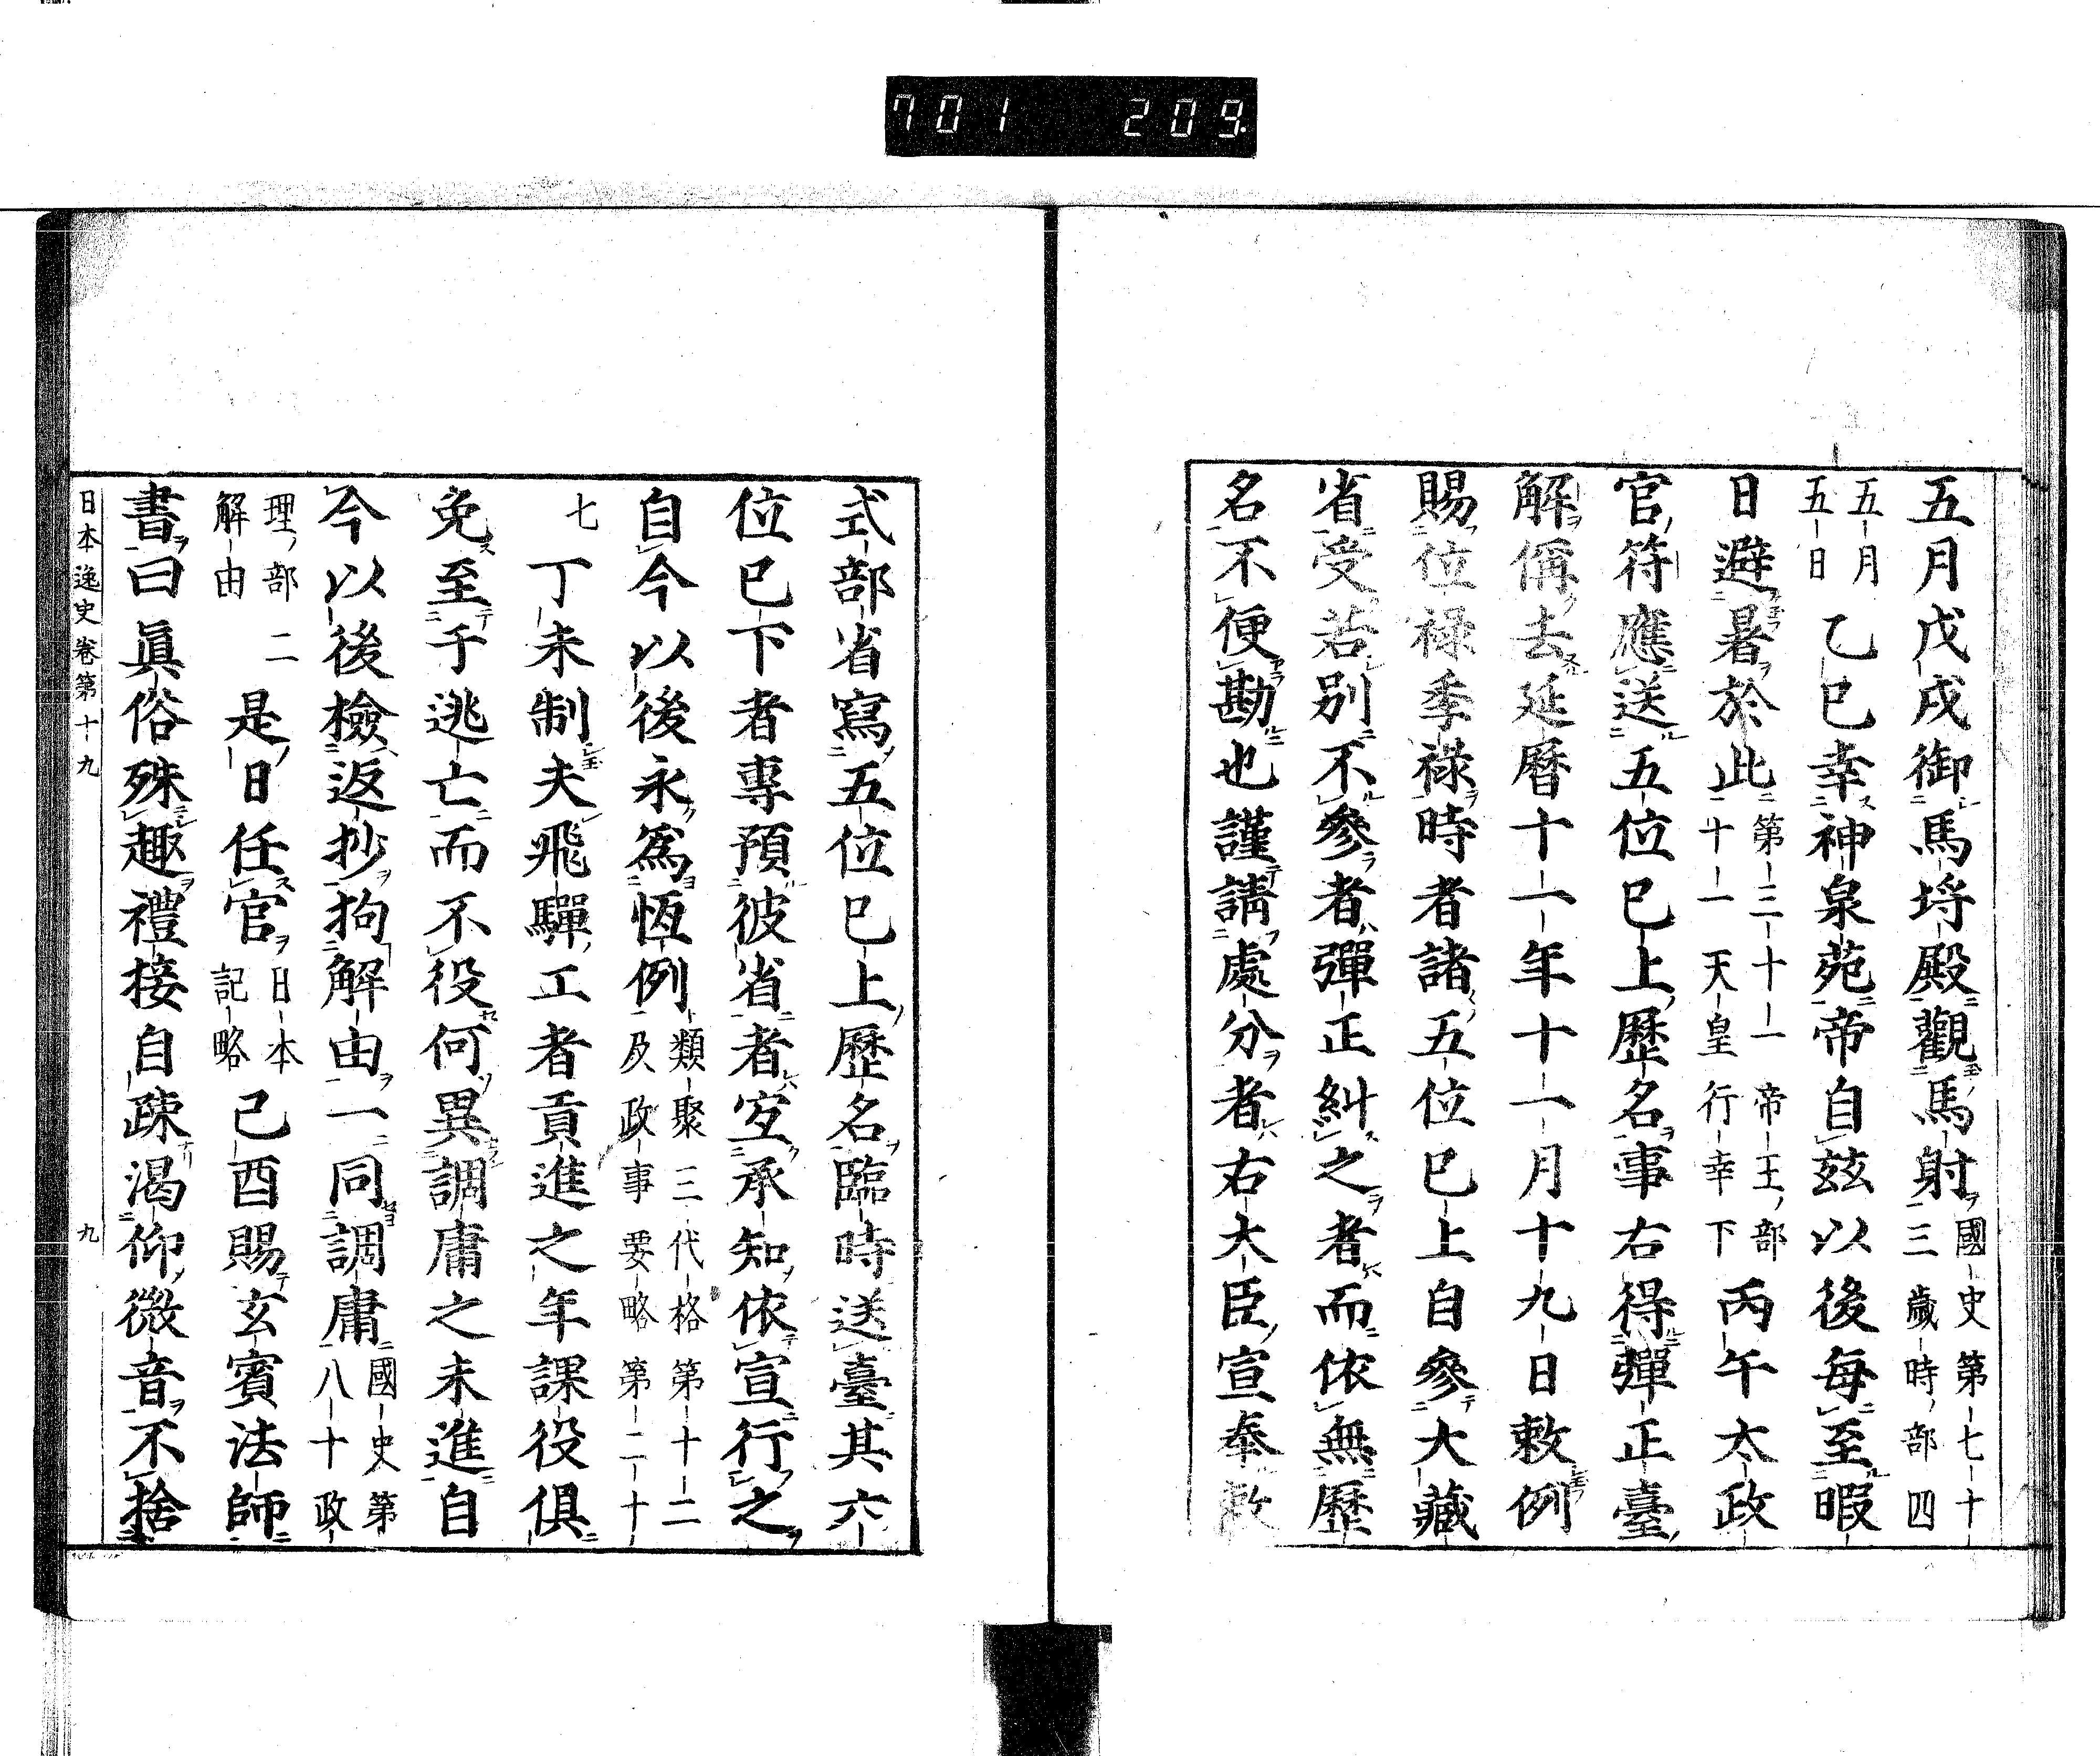 701 209
五月戊戌御馬埒殿觀馬射國史第七十三歲時部四
五月五日乙巳幸神泉苑帝自玆以後每至暇
日避暑於此第三十一帝王部十一天皇行幸下丙午太政
官符應送五位已上歷名事右得彈正臺
解偁去延曆十一年十一月十九日敕例
賜位祿季祿時者諸五位已上自參大藏
省受若別不參者彈正糾之者而依無歷
名不便勘也謹請處分者右大臣宣奉敕
式部省寫五位已上歷名臨時送臺其六
位已下者專預彼省者宜承知依宣行之
自今以後永爲恆例類聚三代格第十二及政事要略第二十
七丁未制夫飛驒工者貢進之年課役俱
免至于逃亡而不役何異調庸之未進自
今以後檢返抄拘解由一同調庸國史第八十政
理部二解由是日任官日本記略己酉賜玄賓法師
書曰眞俗殊趣禮接自疎渴仰微音不捨
日本逸史卷第十九 九